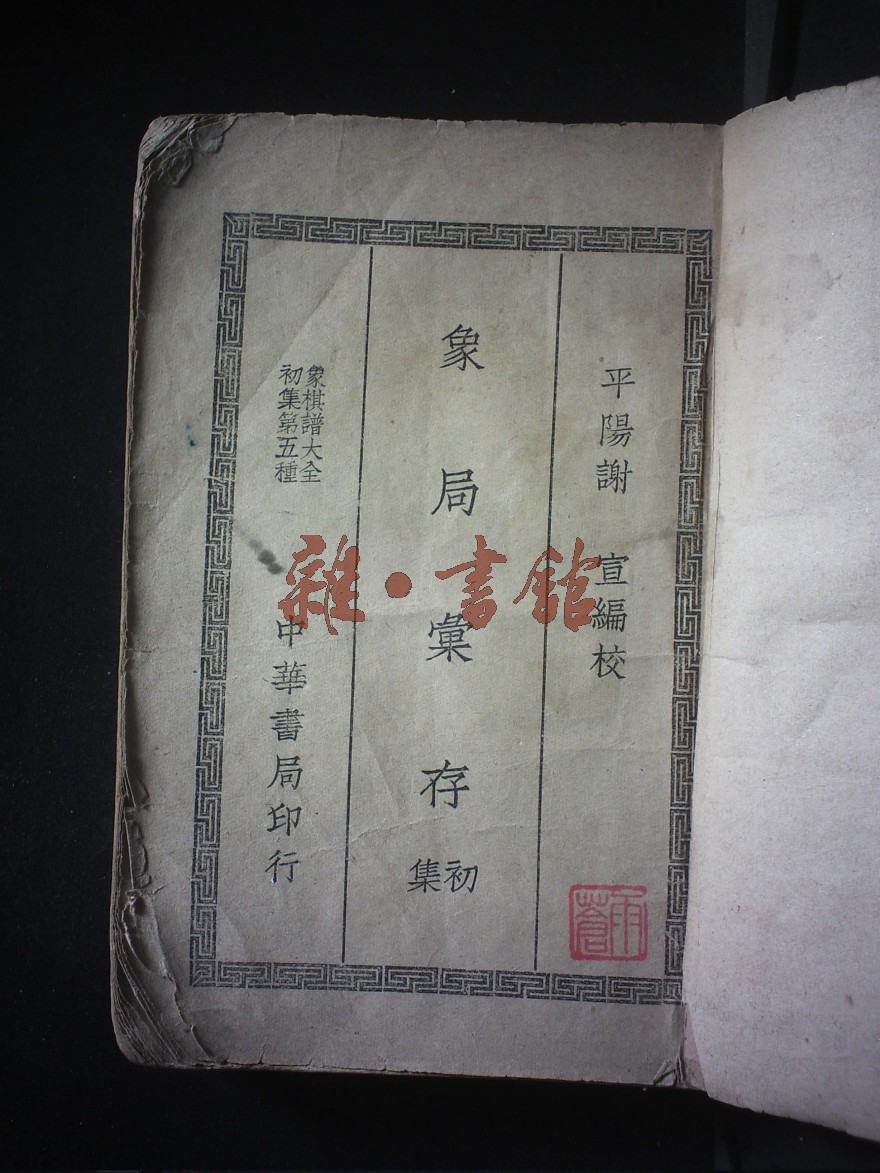 平陽謝 宣編校
象局彙存
初集
象棋譜大全
初集第五種
中華書局印行
雨蒼
雜·書館